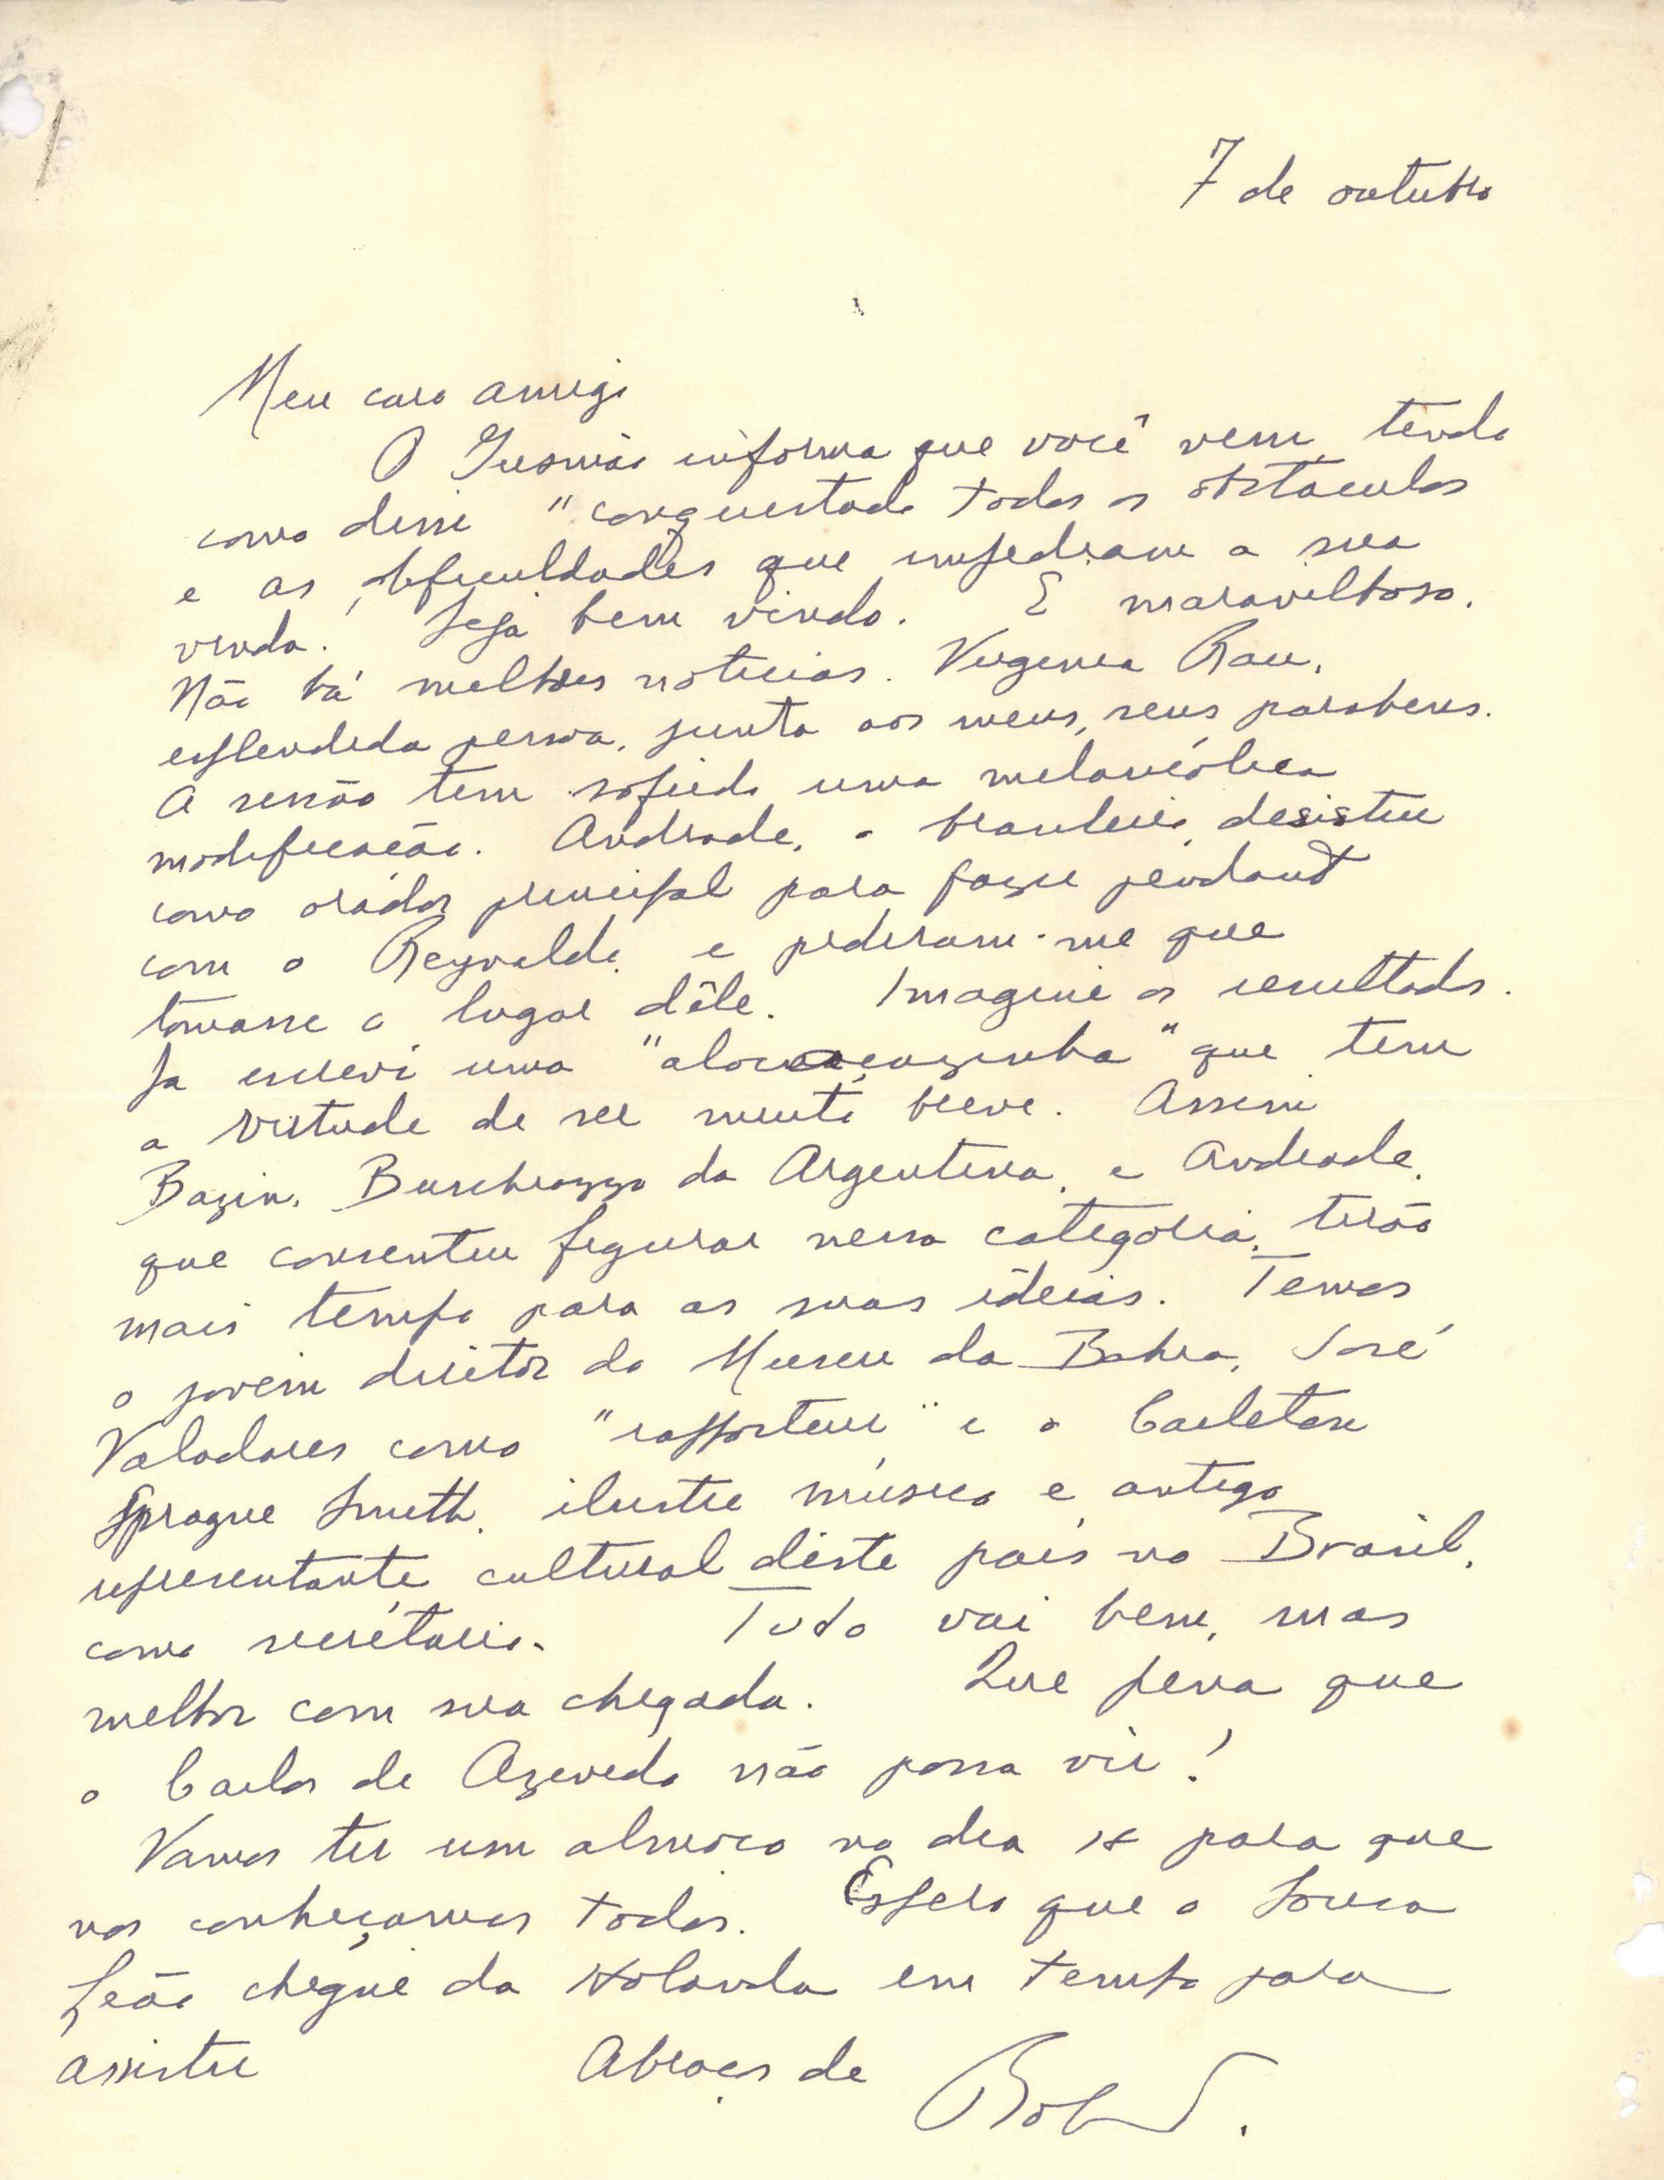 7 de outubro
Meu caro amigo
O Gusmão informa que você vem, tendo
como disse "conquistado todos os obstaculos
e as dificuldades que impediram a sua
vinda. Seja bem vindo. É maravilhoso.
Não há melhores noticias. Virginia Rau,
esplendida pessoa, junta aos meus, seus parabens.
A sessão tem sofrido uma melancólica
modificação. Andrade, o brasileiro, desistiu
como orador principal para fazer pendant
com o Reynaldo, e pediram-me que
tomasse o lugar dêle. Imagine os resultados.
Ja escrevi uma " " que tem
a virtude de ser muito breve. Assim
Bazin, Buschiazzo da Argentina, e Andrade,
que consentiu figurar nessa categoria, terão
mais tempo para as suas idéias. Temos
o jovem diretor do Museu da Bahia, José
Valadares como "rapporteur" e o Carleton
Sprague Smith, ilustre músico e antigo
representante cultural dêste país no Brasil,
como secretário. Tudo vai bem, mas
melhor com sua chegada. Que pena que
o Carlos de Azevedo não possa vir!
Vamos ter um almoço no dia para que
nos conheçamos todos. Espero que o Souza
Leão chegue da Holanda em tempo para
assistir Abraços de
Bob S.